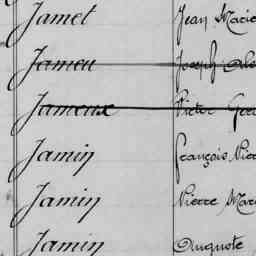 Jamet Jean Marie
Jameu Joseph
Jameux Victor
Jamin François Pier
Jamin Pierre Mari
Jamin Auguste